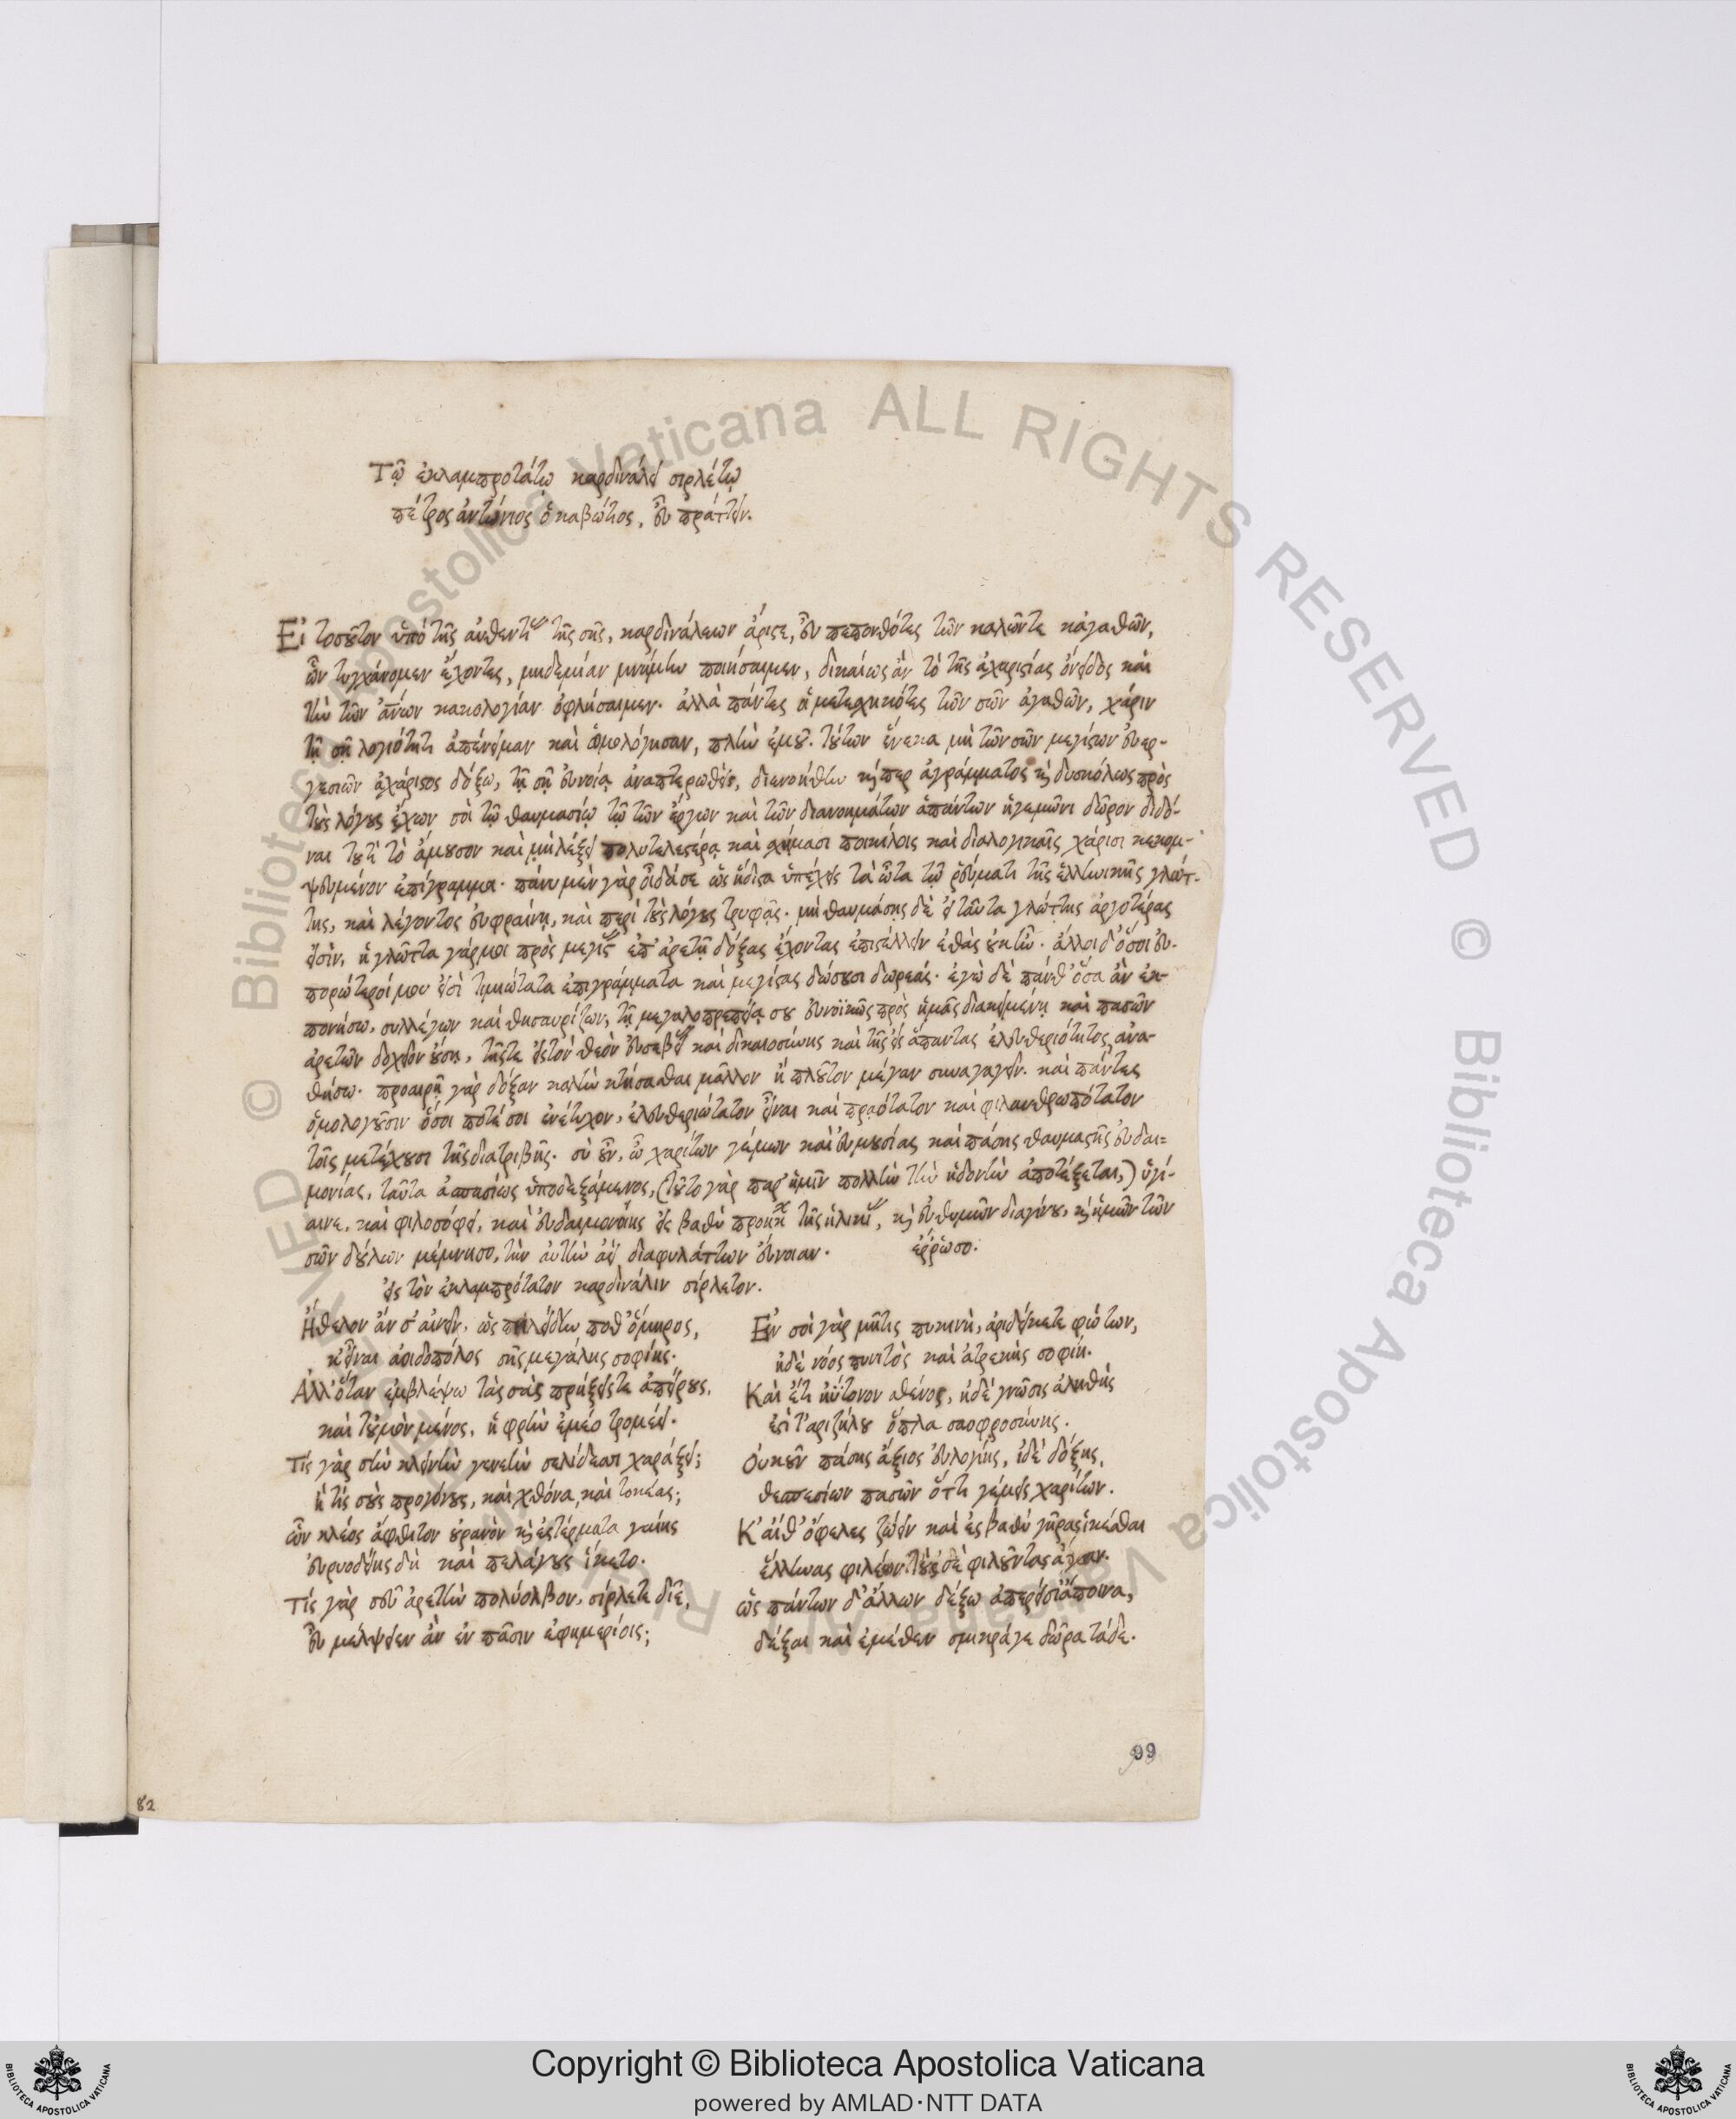 Τῷ ἐκλαμπροτάτῳ καρδινάλει σιρλέτῳ
πέτρος ἀντώνιος ὁ καβώτος, εὖ πράττειν.
Εἰ τοσοῦτον ὑπὸ τῆς αὐθεντίας τῆς σῆς, καρδινάλεων ἄριστε, εὖ πεπονθότες τῶν καλῶντε κἀγαθῶν,
ὧν τυγχάνομεν ἔχοντες, μηδεμίαν μνήμην ποιήσαιμεν, δικαίως ἂν τὸ τῆς ἀχαριστίας ὄνειδος καὶ
τὴν τῶν ἀνων κακολογίαν ὀφλήσαιμεν. ἀλλὰ πάντες οἱ μετεσχηκότες τῶν σῶν ἀγαθῶν, χάριν
τῇ σῇ λογιότητι ἀπένειμαν καὶ ὡμολόγησαν, πλὴν ἐμοῦ. τούτων ἕνεκα μὴ τῶν σῶν μεγίστων εὐερ-
γεσιῶν ἀχάριστος δόξω, τῇ σῇ εὐνοίᾳ ἀναπτερωθεὶς, διενοήθην καίπερ ἀγράμματος καὶ δυσκόλως πρὸς
τοὺς λόγους ἔχων σοὶ τῷ θαυμασίῳ τῷ τῶν ἔργων καὶ τῶν διανοημάτων ἁπάντων ἡγεμῶνι δῶρον διδό-
ναι τουτὶ τὸ ἄμουσον καὶ μὴ λέξει πολυτελεστέρᾳ καὶ σχήμασι ποικίλοις καὶ διαλογικαῖς χάρισι κεκομ-
ψευμένον ἐπίγραμμα. πάνυ μὲν γὰρ οἶδά σε ὡς ἥδιστα ὑπέχεις τὰ ὦτα τῷ ῥεύματι τῆς ἑλληνικῆς γλώτ-
της, καὶ λέγοντος εὐφραίνῃ, καὶ περὶ τοὺς λόγους τρυφᾷς. μὴ θαυμάσῃς δὲ εἰ ταῦτα γλώττης ἀργοτέρας
εἰσὶν, ἡ γλῶττα γάρ μοι πρὸς μεγίστ ἐπ' ἀρετῇ δόξας ἔχοντας ἐπιστέλλειν ἐθὰς οὐκ ἦν. ἄλλοι δ' ὅσοι εὐ-
πορώτεροί μου εἰσὶ τιμιώτατα ἐπιγράμματα καὶ μεγίστας δώσουσι δωρεάς. ἐγὼ δὲ πάνθ' ὅσα ἂν ἐκ-
πονήσω, συλλέγων καὶ θησαυρίζων, τῇ μεγαλοπρεπείᾳ σου εὐνοϊκῶς πρὸς ἡμᾶς διακειμένῃ καὶ πασῶν
ἀρετῶν δοχεῖον οὔσῃ, τῆς τε εἰς τὸν θεὸν εὐσεβεί καὶ δικαιοσύνης καὶ τῆς εἰς ἅπαντας ἐλευθεριότητος, ἀνα-
θήσω. προαιρῇ γὰρ δόξαν καλὴν κτήσασθαι μᾶλλον ἢ πλοῦτον μέγαν συναγαγεῖν. καὶ πάντες
ὁμολογοῦσιν ὅσοι ποτέ σοι ἐνέτυχον, ἐλευθεριώτατον εἶναι καὶ πρᾳότατον καὶ φιλανθρωπότατον
τοῖς μετέχουσι τῆς διατριβῆς. σὺ οὖν, ὦ χαρίτων γέμων καὶ εὐμουσίας καὶ πάσης θαυμαστῆς εὐδαι=
μονίας, ταῦτα ἀσπασίως ὑποδεξάμενος, (τοῦτο γὰρ παρ' ἡμῖν πολλὴν τὴν ἡδονὴν ἀποτέξεται,) ὑγί-
αινε, καὶ φιλοσόφει, καὶ εὐδαιμονοίης εἰς βαθὺ προηκ τῆς ἡλικί, καὶ εὐθυμῶν διαγίνου, καὶ ἡμῶν τῶν
σῶν δούλων μέμνησο, τὴν αὐτὴν ἀεὶ διαφυλάττων εὔνοιαν. ἔρρωσο.
εἰς τὸν ἐκλαμπρότατον καρδινάλιν σίρλετον.
Ἤθελον ἄν σ' αἰνεῖν, ὡς πηλείδην ποθ' ὅμηρος,
κ' εἶναι ἀοιδοπόλος σῆς μεγάλης σοφίης.
Ἀλλ' ὅταν ἐμβλέψω τὰς σὰς πρήξεις τε ἀπείρους,
καὶ τοὐμὸν μένος, ἡ φρὴν ἐμέο τρομέει.
Τίς γὰρ σὴν κλεινὴν γενεὴν σελίδεσσι χαράξει;
ἢ τίς σοὺς προγόνους, καὶ χθόνα, καὶ τοκέας;
ὧν κλέος ἄφθιτον οὐρανὸν καὶ ἐς τέρματα γαίης
εὐρυοδείης δὴ καὶ πελάγους ἵκετο.
Τίς γὰρ σεῦ ἀρετὴν πολύολβον, σίρλετε δῖε,
εὖ μέλψειεν ἂν ἐν πᾶσιν ἐφημερίοις;
Εἰν σοὶ γὰρ μῆτις πυκινὴ, ἀριδείκετε φώτων,
ἠδὲ νόος πινυτὸς καὶ ἀτρεκὴς σοφίη.
Καὶ ἔτι ηὔτονον σθένος, ἠδὲ γνῶσις ἀληθὴς
ἐστὶ τ' ἀριζήλου ὅπλα σαοφροσύνης.
Οὐκοῦν πάσης ἄξιος εὐλογίης, ἰδὲ δόξης,
θεσπεσίων πασῶν ὅττι γέμεις χαρίτων.
Κ' αἴθ' ὄφελες ζώειν καὶ ἐς βαθὺ γῆρας ἱκέσθαι
ἕλληνας φιλέων τοὺς δὲ φιλοῦντας ἄγαν.
ὡς πάντων δ' ἄλλων δέξω ἀπερείσι' ἄποινα,
δέξαι καὶ ἐμέθεν σμικρά γε δῶρα τάδε.
99
82
© Biblioteca Apostolica Vaticana ALL RIGHTS RESERVED © Biblioteca Apostolica Vaticana ALL RIGHTS RESERVED
Copyright © Biblioteca Apostolica Vaticana
powered by AMLAD・NTT DATA
BIBLIOTECA APOSTOLICA VATICANA
BIBLIOTECA APOSTOLICA VATICANA